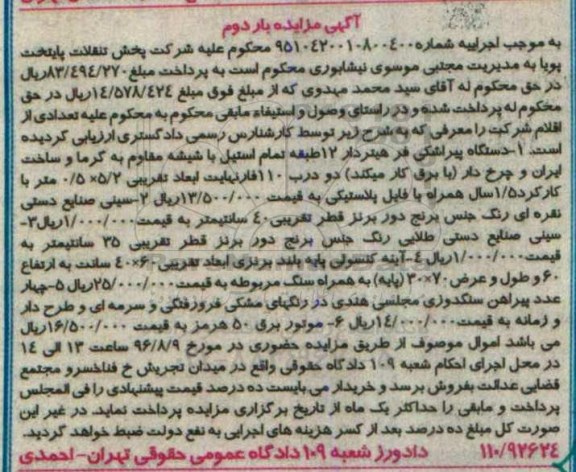 آگهی مزایده بار دوم
به موجب اجراییه شماره ۹۵۱۰۴۲۰۰۱۰۸۰۰۴۰۰ محکوم علیه شرکت پخش تنقلات پایتخت
پویا به مدیریت مجتبی موسوی نیشابوری محکوم است به پرداخت مبلغ ۸۳/۴۹۴/۲۷۰ریال
در حق محکوم له آقای سید محمد مهدوی که از مبلغ فوق مبلغ ۱۴/۵۷۸/۴۲۴ریال در حق
محکوم له پرداخت شده و در راستای وصول و استیفاء مابقی محکوم به محکوم علیه تعدادی از
اقلام شرکت را معرفی که به شرح زیر توسط کارشناس رسمی دادگستری ارزیابی گردیده
است. ۱-دستگاه پیراشکی فر هیتردار ۱۲طبقه تمام استیل با شیشه مقاوم به گرما و ساخت
ایران و چرخ دار (با برق کار میکند) دو درب ۱۱۰فارنهایت ابعاد تقریبی ۵/۲× ۰/۵ متر با
کارکرد۱/۵سال همراه با فایل پلاستیکی به قیمت ۱۳/۵۰۰/۰۰۰ریال ۲-سینی صنایع دستی
نقره ای رنگ جنس برنج دور برنز قطر تقریبی۴۰ سانتیمتر به قیمت۱/۰۰۰/۰۰۰ریال۳-
سینی صنایع دستی طلایی رنگ جنس برنج دور برنز قطر تقریبی ۳۵ سانتیمتر به
قیمت۱/۰۰۰/۰۰۰ریال ۴-آینه کنسولی پایه بلند برنزی ابعاد تقریبی۶۰×۴۰ سانت به ارتفاع
۶۰و طول و عرض۷۰×۳۰ (پایه) به همراه سنگ مربوطه به قیمت۲۵/۰۰۰/۰۰۰ریال ۵-چهار
عدد پیراهن سنگدوزی مجلسی هندی در رنگهای مشکی فروزفتگی و سرمه ای و طرح دار
و زمانه به قیمت۱۴/۰۰۰/۰۰۰ریال ۶- موتور برق ۵۰ هرمز به قیمت ۱۶/۵۰۰/۰۰۰ریال
می باشد اموال موصوف از طریق مزایده حضوری در مورخ ۹۶/۸/۹ ساعت ۱۳ الی ۱۴
در محل اجرای احکام شعبه ۱۰۹ دادگاه حقوقی واقع در میدان تجریش خ فناخسرو مجتمع
قضایی عدالت بفروش برسد و خریدار می بایست ده درصد قیمت پیشنهادی را فی المجلس
پرداخت و مابقی را حداکثر یک ماه از تاریخ برگزاری مزایده پرداخت نماید. در غیر این
صورت کل مبلغ ده درصد بعد از کسر هزینه های اجرایی به نفع دولت ضبط خواهد گردید.
۱۱۰/۹۲۶۲۴ دادورز شعبه ۱۰۹ دادگاه عمومی حقوقی تهران-احمدی